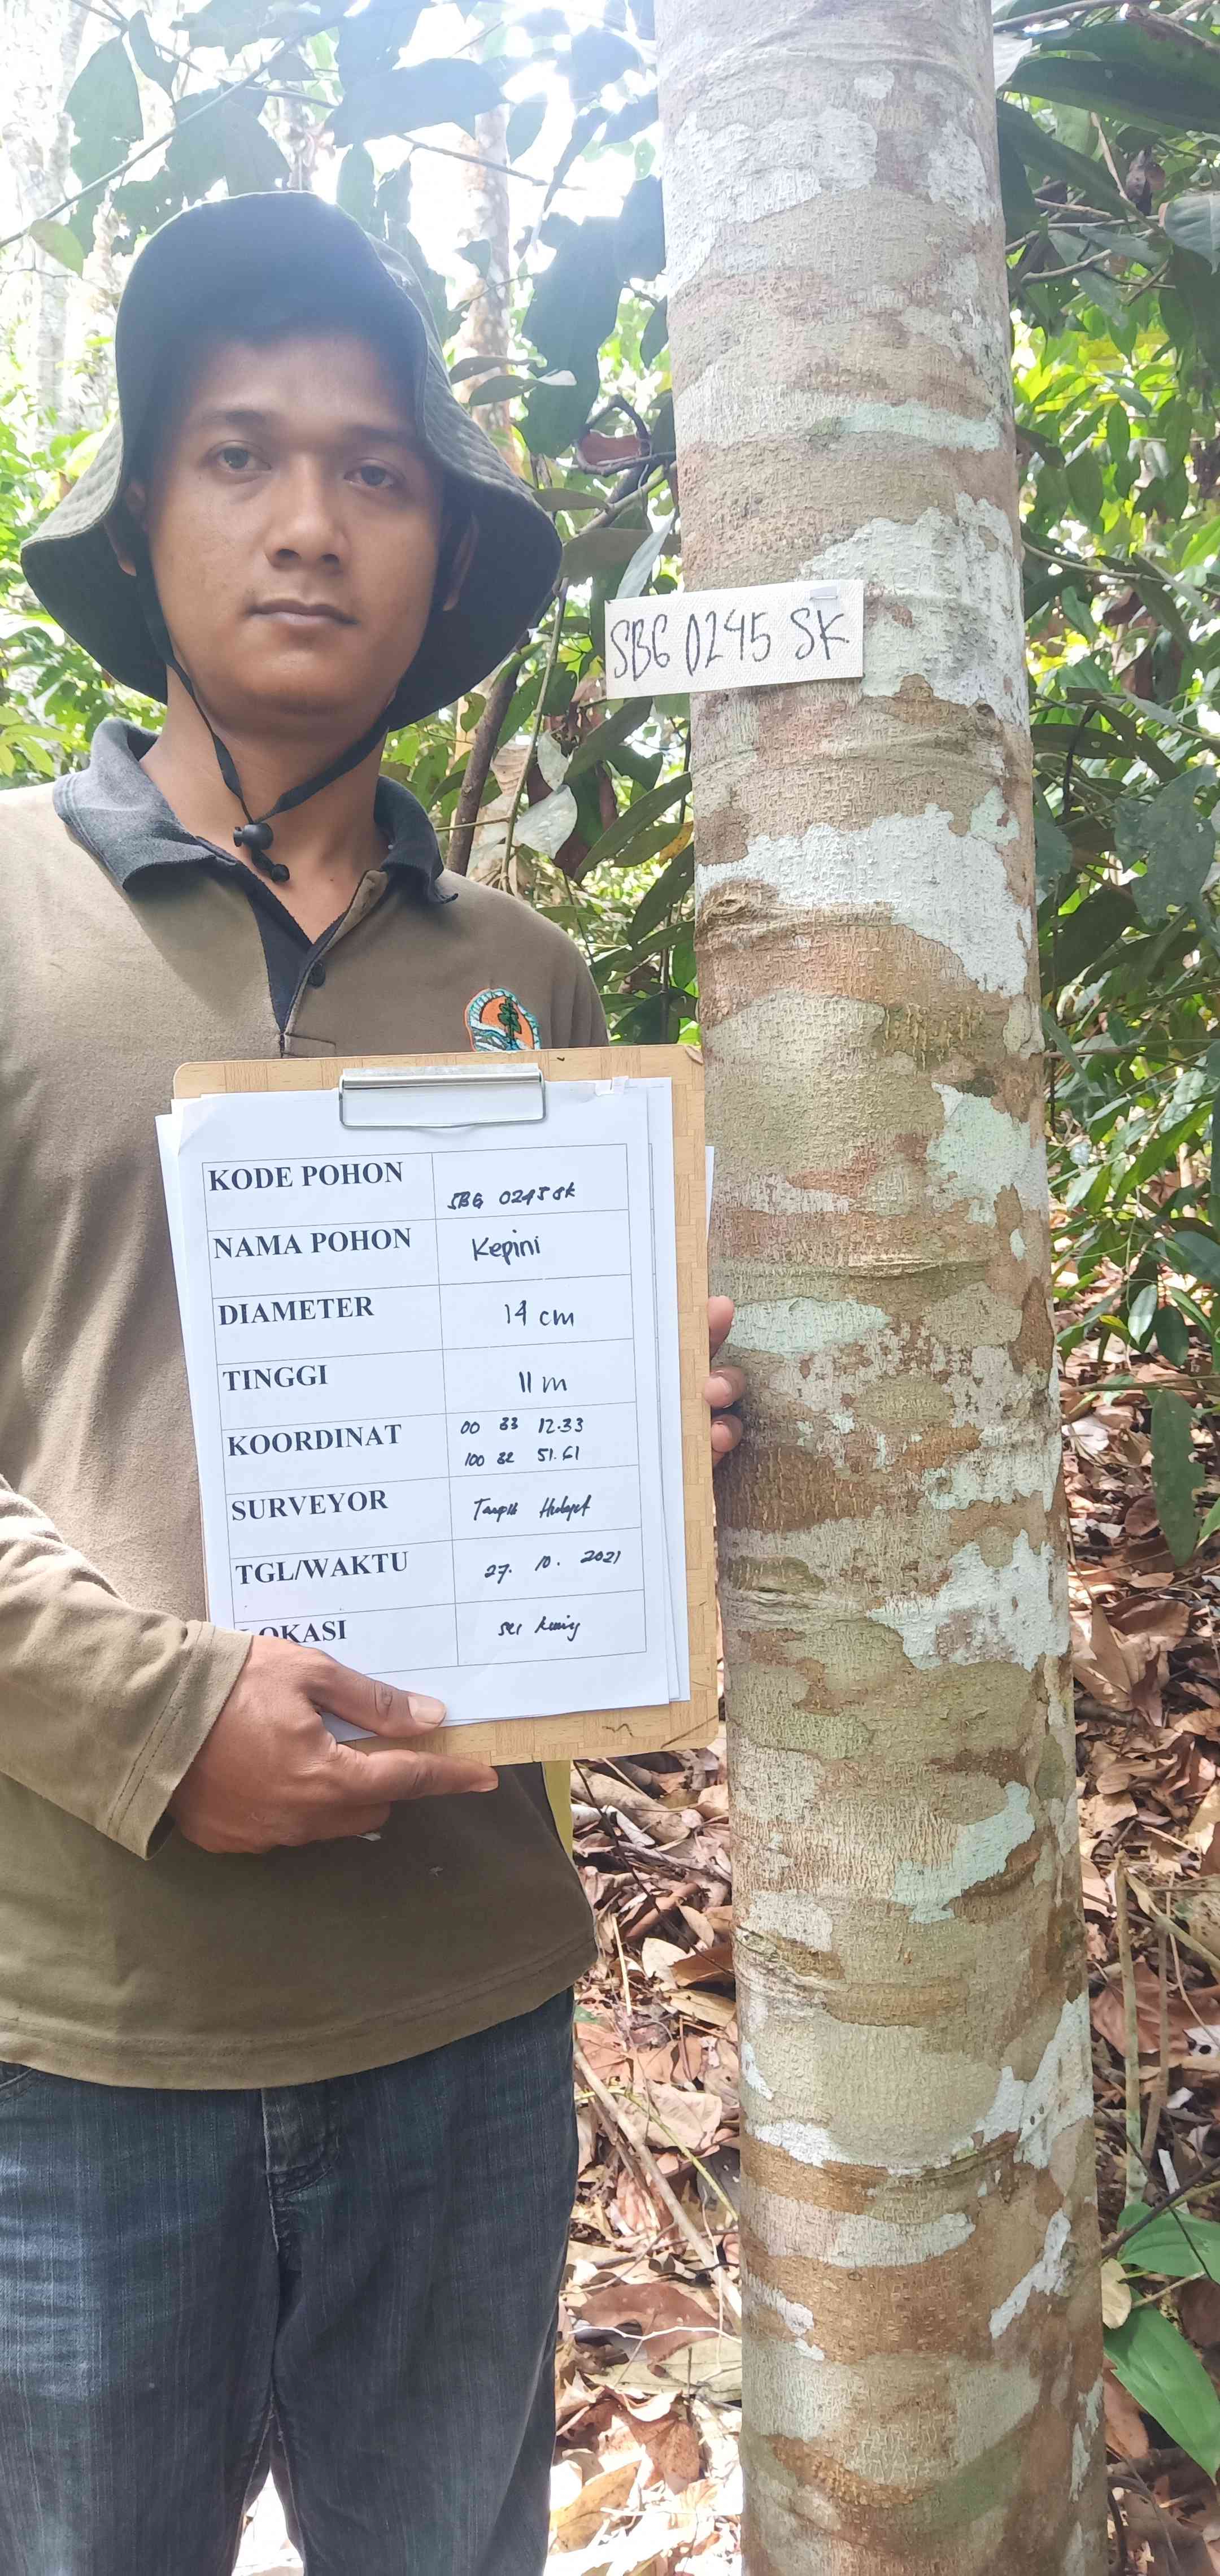 SBG 0245 SK
KODE POHON SBG 0245 SK
NAMA POHON Kepini
DIAMETER 14 cm
TINGGI 11 m
KOORDINAT 00 33 12.33
100 32 51.61
SURVEYOR
TGL/WAKTU 27. 10. 2021
LOKASI